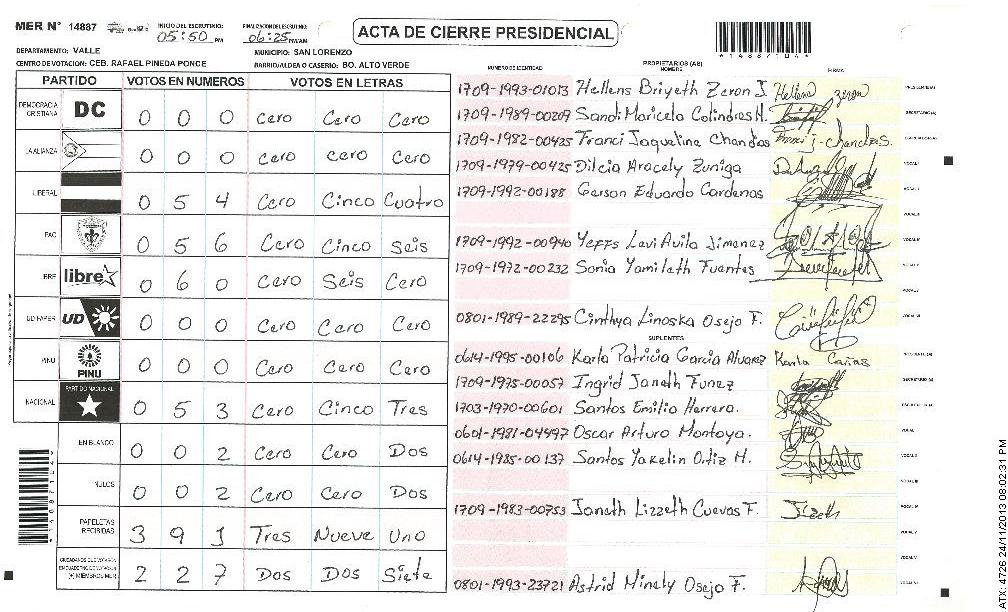 MER N° 14887
INICIO DEL ESCRUTINIO: 05:50 PM
FINALIZACION DEL ESCRUTINIO: 06:25 PM/AM
ACTA DE CIERRE PRESIDENCIAL
*14887104*
DEPARTAMENTO: VALLE
MUNICIPIO: SAN LORENZO
CENTRO DE VOTACION: CEB. RAFAEL PINEDA PONCE
BARRIO/ALDEA O CASERIO: BO. ALTO VERDE
PARTIDO VOTOS EN NUMEROS VOTOS EN LETRAS
DEMOCRACIA CRISTIANA DC 0 0 0 Cero Cero Cero
LA ALIANZA 0 0 0 Cero Cero Cero
LIBERAL 0 5 4 Cero Cinco Cuatro
PAC 0 5 6 Cero Cinco Seis
LIBRE libre 0 6 0 Cero Seis Cero
UD-FAPER UD 0 0 0 Cero Cero Cero
PINU PINU 0 0 0 Cero Cero Cero
NACIONAL PARTIDO NACIONAL 0 5 3 Cero Cinco Tres
EN BLANCO 0 0 2 Cero Cero Dos
NULOS 0 0 2 Cero Cero Dos
PAPELETAS RECIBIDAS 3 9 1 Tres Nueve Uno
CIUDADANOS QUE VOTARON EN CUADERNO DE VOTACION (+) MIEMBROS MER 2 2 7 Dos Dos Siete
NUMERO DE IDENTIDAD
PROPIETARIOS (AS)
NOMBRE
FIRMA
1709-1993-01013 Hellens Briyeth Zeron J. Hellens zeron PRESIDENTE(A)
1709-1989-00209 Sandi Maricela Colindres H. SECRETARIO (A)
1709-1982-00425 Franci Jaqueline Chandias
1709-1979-00425 Dilcia Aracely Zuniga
1709-1992-00188 Gerson Eduardo Cardenas
1709-1992-00940 Yeffs Levi Avila Jimenez
1709-1972-00232 Sonia Yamileth Fuentes
0801-1989-22295 Cinthya Linoska Osejo F.
SUPLENTES
0614-1995-00106 Karla Patricia Garcia Alvarez Karla PRESIDENTE (A)
1709-1975-00057 Ingrid Janeth Funez SECRETARIO (A)
1703-1970-00601 Santos Emilio Herrera.
0601-1981-04497 Oscar Arturo Montoya.
0614-1985-00137 Santos Yakelin Ortiz M.
1709-1983-00753 Janeth Lizzeth Cuevas F.
0801-1993-23721 Astrid Minely Osejo F.
ATX 4726 24/11/2013 08:02:31 PM